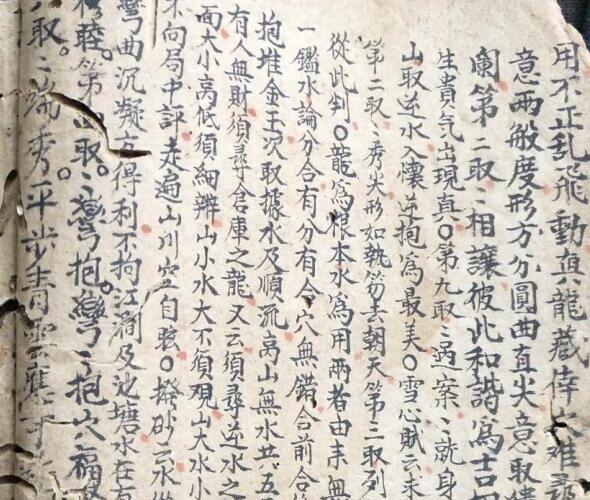 用不正乱飛動真龍藏倖穴难尋
意两敏度形方分圓曲直尖意取
闌第二取〻相讓彼此和諧爲吉
生貴气出現真〇第九取〻迎案〻就身
山取逆水入懷逆抱爲最美〇雪心賦云未
第二取〻秀尖形如執笏去朝天第三取列
從此判〇龍爲根本水爲用两者由来無
一鑑水論分合有分有合穴無錯合前合
抱堆金玉次取據水及順流离山無水共五
有人無財須尋倉庫之龍又云須尋逆水之
面大小高低須細辨山小水大不須觀山大水小
不向局中評走遍山川空自駭〇撥砂云水
彎曲沉凝方得利不拘江澗及池塘水在
睦〇第四取〻彎抱彎〻抱穴福
取〻端秀平步青雲應